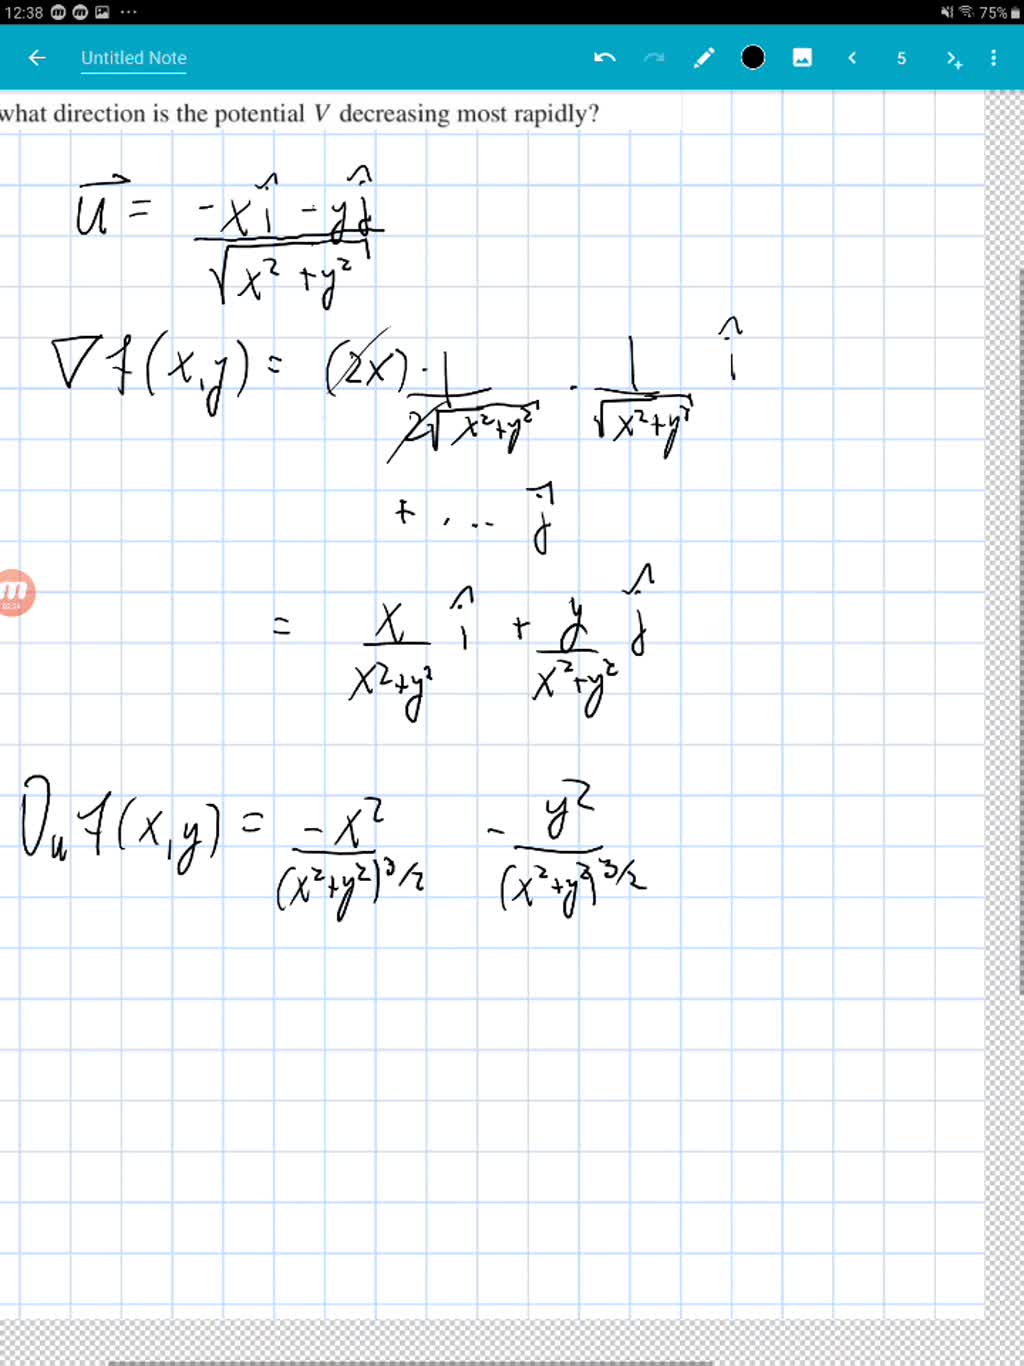 12:38 75%
Untitled Note 5
what direction is the potential V decreasing most rapidly?
u⃗ = (-x î - y ĵ) / √(x² + y²)
∇f(x,y) = (2x) · 1 / (2√(x²+y²)) · 1 / √(x²+y²) î
+ ... ĵ
= x / (x²+y²) î + y / (x²+y²) ĵ
D_u f(x,y) = -x² / (x²+y²)^3/2 - y² / (x²+y²)^3/2